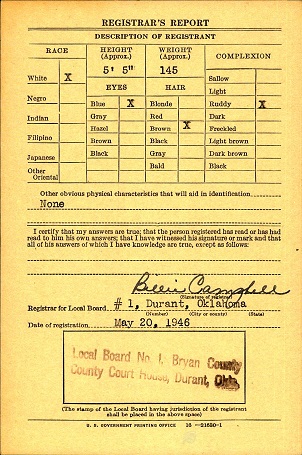 REGISTRAR'S REPORT
DESCRIPTION OF REGISTRANT
RACE
HEIGHT
(Approx.)
WEIGHT
(Approx.)
COMPLEXION
5' 5"
145
White X
Negro
Indian
Filipino
Japanese
Other
Oriental
EYES
Blue X
Gray
Hazel
Brown
Black
HAIR
Blonde
Red
Brown X
Black
Gray
Bald
Sallow
Light
Ruddy X
Dark
Freckled
Light brown
Dark brown
Black
Other obvious physical characteristics that will aid in identification
None
I certify that my answers are true; that the person registered has read or has had
read to him his own answers; that I have witnessed his signature or mark and that
all of his answers of which I have knowledge are true, except as follows:
Billie Campbell
(Signature of registrar)
Registrar for Local Board # 1, Durant, Oklahoma
(Number) (City or county) (State)
Date of registration May 20, 1946
Local Board No. 1, Bryan County
County Court House, Durant, Okla.
(The stamp of the Local Board having jurisdiction of the registrant
shall be placed in the above space)
U. S. GOVERNMENT PRINTING OFFICE 16—21630-1